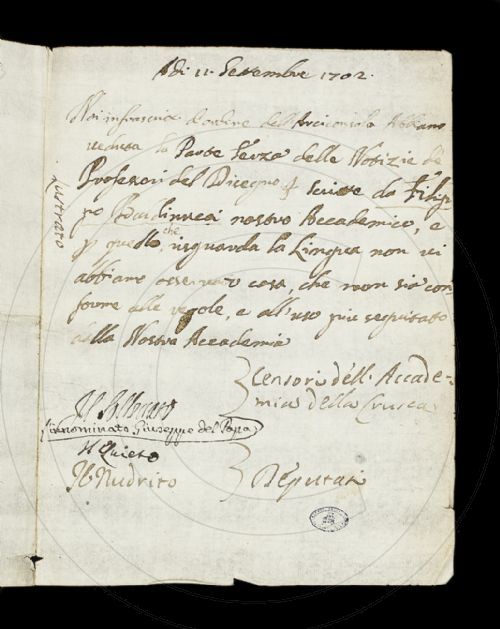 Adì 11. Settembre 1702.
Noi infrascritti d'ordine dell'Arciconsolo Abbiamo
veduta la Parte Terza delle Notizie de
Professori del Disegno scritte da Filip
po Baldinucci nostro Accademico, e
p quello, che risguarda la Lingua non vi
abbiamo osservato cosa, che non sia con
forme alle regole, e all'uso più seguitato
della Nostra Accademia
Censori dell'Accade-
mia della Crusca
Lustrato
(innominato Giuseppe del Papa)
Il Quieto
Il Nudrito
Deputati